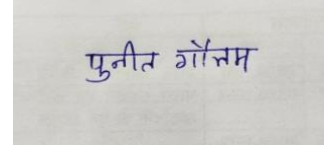 पुनीत गौतम